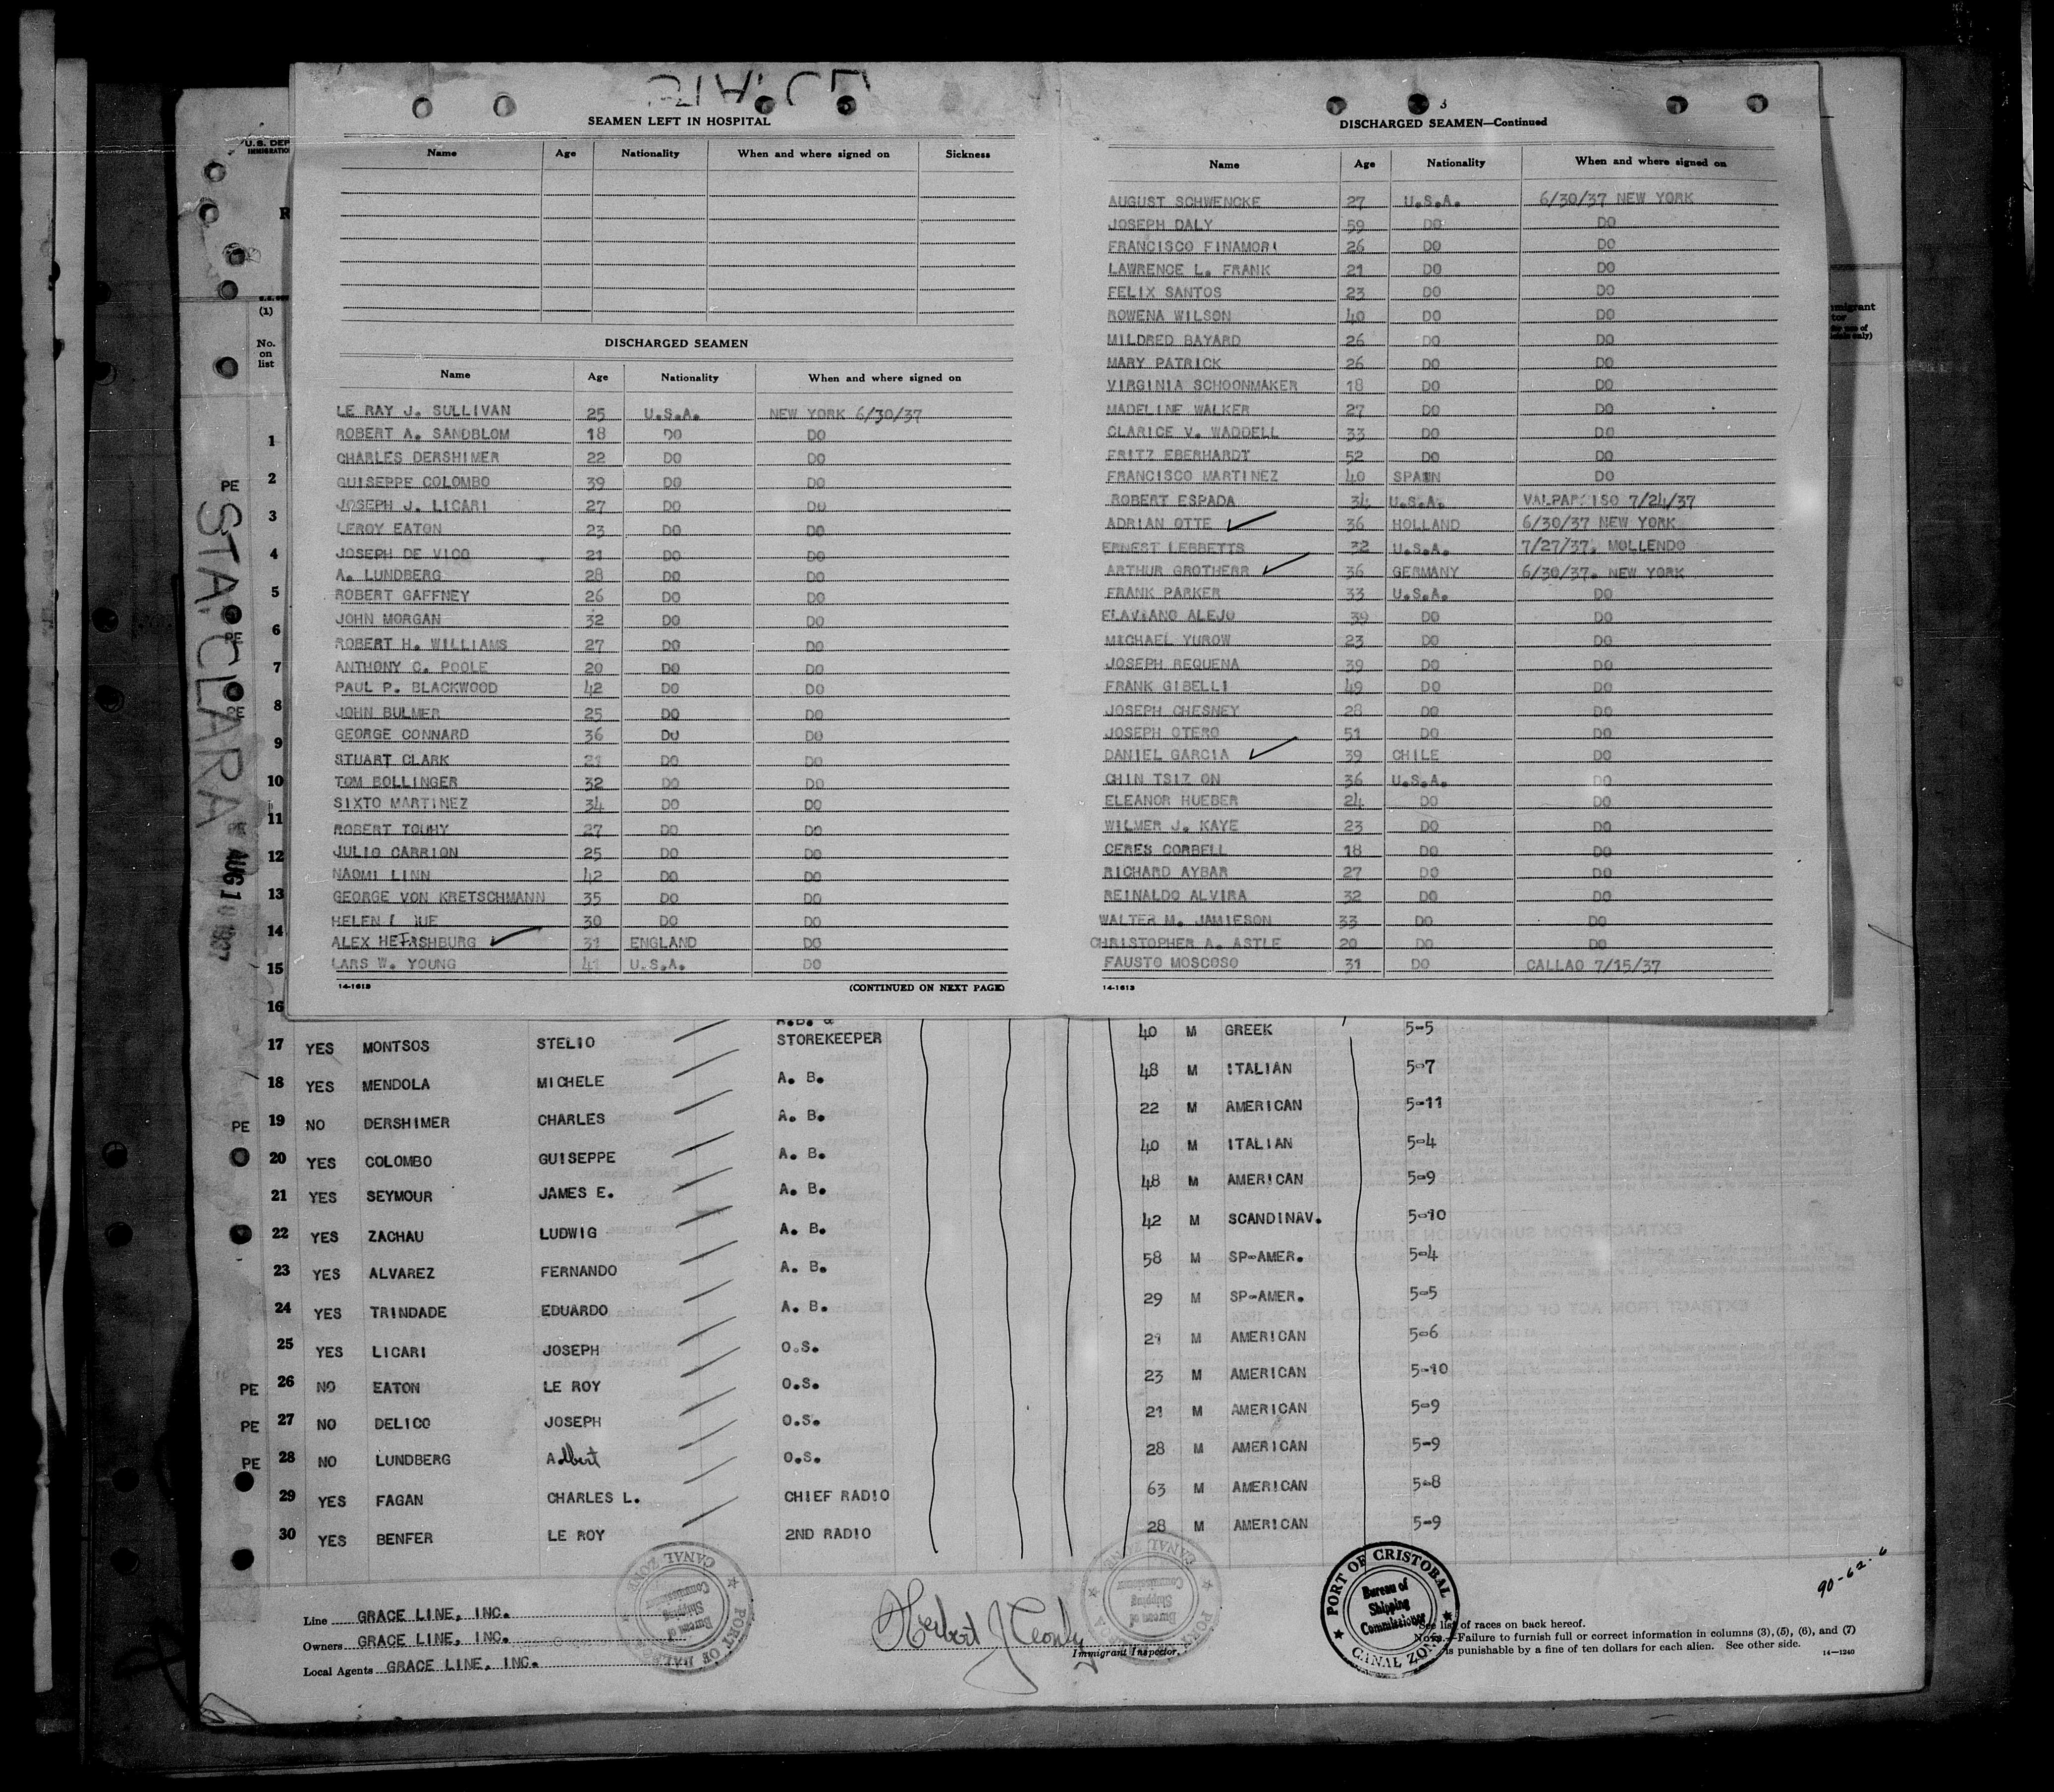 STA. CL
SEAMEN LEFT IN HOSPITAL
Name Age Nationality When and where signed on Sickness
DISCHARGED SEAMEN
Name Age Nationality When and where signed on
LE RAY J. SULLIVAN 25 U.S.A. NEW YORK 6/30/37
ROBERT A. SANDBLOM 18 DO DO
CHARLES DERSHIMER 22 DO DO
GUISEPPE COLOMBO 39 DO DO
JOSEPH J. LICARI 27 DO DO
LEROY EATON 23 DO DO
JOSEPH DE VICO 21 DO DO
A. LUNDBERG 28 DO DO
ROBERT GAFFNEY 26 DO DO
JOHN MORGAN 32 DO DO
ROBERT H. WILLIAMS 27 DO DO
ANTHONY C. POOLE 20 DO DO
PAUL P. BLACKWOOD 42 DO DO
JOHN BULMER 25 DO DO
GEORGE CONNARD 36 DO DO
STUART CLARK 21 DO DO
TOM BOLLINGER 32 DO DO
SIXTO MARTINEZ 34 DO DO
ROBERT TOUHY 27 DO DO
JULIO CARRION 25 DO DO
NAOMI LINN 42 DO DO
GEORGE VON KRETSCHMANN 35 DO DO
HELEN 30 DO DO
ALEX 31 ENGLAND DO
LARS W. YOUNG 41 U.S.A. DO
14-1613 (CONTINUED ON NEXT PAGE)
3
DISCHARGED SEAMEN—Continued
Name Age Nationality When and where signed on
AUGUST SCHWENCKE 27 U.S.A. 6/30/37 NEW YORK
JOSEPH DALY 59 DO DO
FRANCISCO FINAMORI 26 DO DO
LAWRENCE L. FRANK 21 DO DO
FELIX SANTOS 23 DO DO
ROWENA WILSON 40 DO DO
MILDRED BAYARD 26 DO DO
MARY PATRICK 26 DO DO
VIRGINIA SCHOONMAKER 18 DO DO
MADELINE WALKER 27 DO DO
CLARICE V. WADDELL 33 DO DO
FRITZ EBERHARDT 52 DO DO
FRANCISCO MARTINEZ 40 SPAIN DO
ROBERT ESPADA 34 U.S.A. VALPARAISO 7/24/37
ADRIAN OTTE ✓ 36 HOLLAND 6/30/37 NEW YORK
ERNEST LEBBETTS 32 U.S.A. 7/27/37. MOLLENDO
ARTHUR GROTHERR ✓ 36 GERMANY 6/30/37. NEW YORK
FRANK PARKER 33 U.S.A. DO
FLAVIANO ALEJO 39 DO DO
MICHAEL YUROW 23 DO DO
JOSEPH REQUENA 39 DO DO
FRANK GIBELLI 49 DO DO
JOSEPH CHESNEY 28 DO DO
JOSEPH OTERO 51 DO DO
DANIEL GARCIA ✓ 39 CHILE DO
CHIN TSIZ ON 36 U.S.A. DO
ELEANOR HUEBER 24 DO DO
WILMER J. KAYE 23 DO DO
CERES CORBELL 18 DO DO
RICHARD AYBAR 27 DO DO
REINALDO ALVIRA 32 DO DO
WALTER M. JAMIESON 33 DO DO
CHRISTOPHER A. ASTLE 20 DO DO
FAUSTO MOSCOSO 31 DO CALLAO 7/15/37
14-1613
U.S. DEP
IMMIGRATION
R
(1)
No.
on
list
PE
STA. CLARA
AUG 1 1937
1
2
3
4
5
6
7
8
9
10
11
12
13
14
15
16
17 YES MONTSOS STELIO STOREKEEPER 40 M GREEK 5-5
18 YES MENDOLA MICHELE A. B. 48 M ITALIAN 5-7
PE 19 NO DERSHIMER CHARLES A. B. 22 M AMERICAN 5-11
20 YES COLOMBO GUISEPPE A. B. 40 M ITALIAN 5-4
21 YES SEYMOUR JAMES E. A. B. 48 M AMERICAN 5-9
22 YES ZACHAU LUDWIG A. B. 42 M SCANDINAV. 5-10
23 YES ALVAREZ FERNANDO A. B. 58 M SP-AMER. 5-4
24 YES TRINDADE EDUARDO A. B. 29 M SP-AMER. 5-5
25 YES LICARI JOSEPH O.S. 21 M AMERICAN 5-6
PE 26 NO EATON LE ROY O.S. 23 M AMERICAN 5-10
PE 27 NO DELICO JOSEPH O.S. 21 M AMERICAN 5-9
PE 28 NO LUNDBERG Albert O.S. 28 M AMERICAN 5-9
29 YES FAGAN CHARLES L. CHIEF RADIO 63 M AMERICAN 5-8
30 YES BENFER LE ROY 2ND RADIO 28 M AMERICAN 5-9
Line GRACE LINE, INC.
Owners GRACE LINE, INC.
Local Agents GRACE LINE, INC.
Immigrant Inspector.
PORT OF CRISTOBAL
Bureau of
Shipping
Commissioner
CANAL ZONE
90-62-6
See list of races on back hereof.
NOTE.—Failure to furnish full or correct information in columns (3), (5), (6), and (7)
is punishable by a fine of ten dollars for each alien. See other side.
14-1240